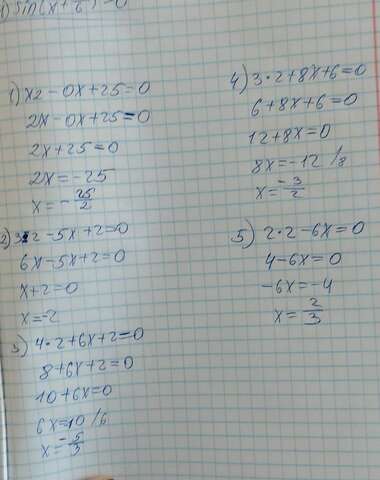 1) x2 - 0x + 25 = 0
2x - 0x + 25 = 0
2x + 25 = 0
2x = -25
x = - 25/2
2) 3x2 - 5x + 2 = 0
6x - 5x + 2 = 0
x + 2 = 0
x = -2
3) 4·2 + 6x + 2 = 0
8 + 6x + 2 = 0
10 + 6x = 0
6x = 10 /6
x = - 5/3
4) 3·2 + 8x + 6 = 0
6 + 8x + 6 = 0
12 + 8x = 0
8x = -12 /8
x = - 3/2
5) 2·2 - 6x = 0
4 - 6x = 0
-6x = -4
x = 2/3